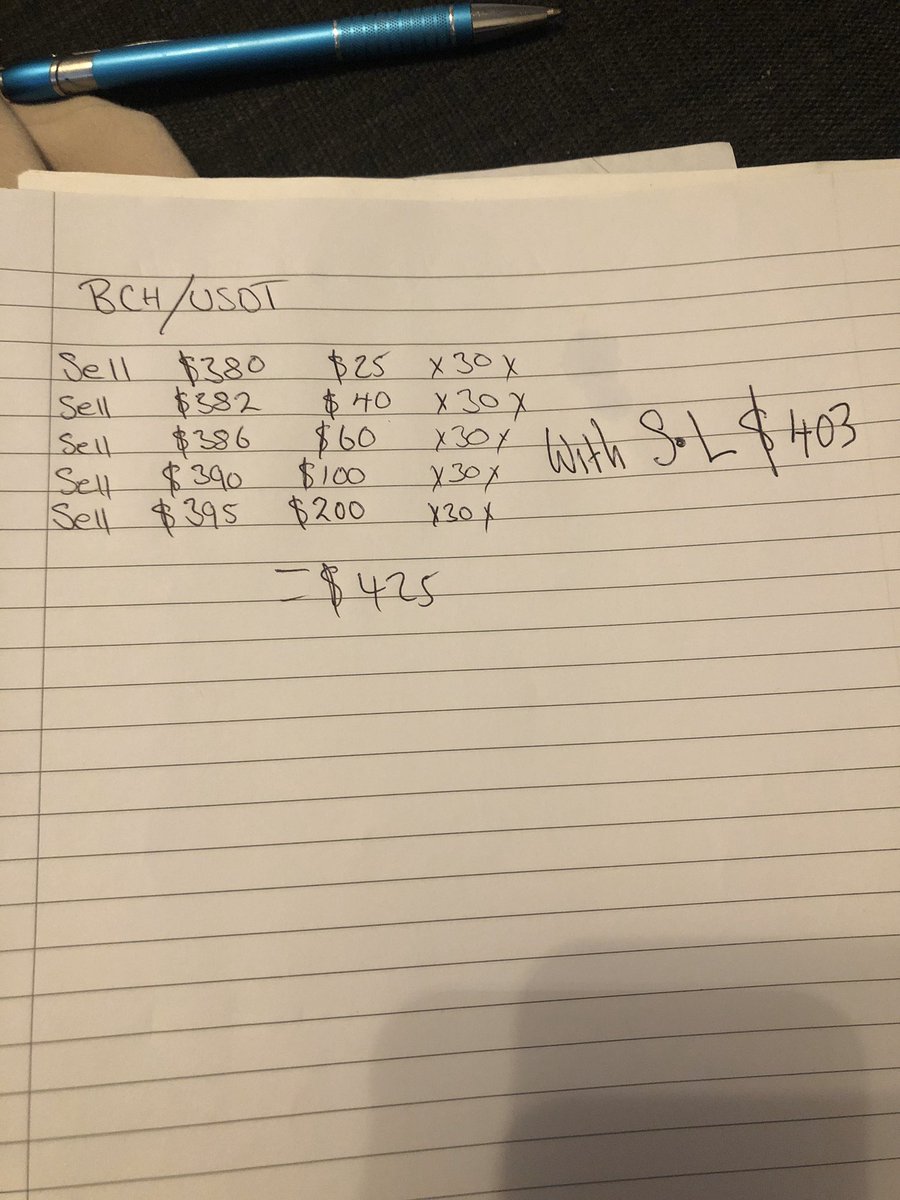 BCH/USDT
Sell $380 $25 x30x
Sell $382 $40 x30x
Sell $386 $60 x30x
Sell $390 $100 x30x
Sell $395 $200 x30x
With S.L $403
=$425